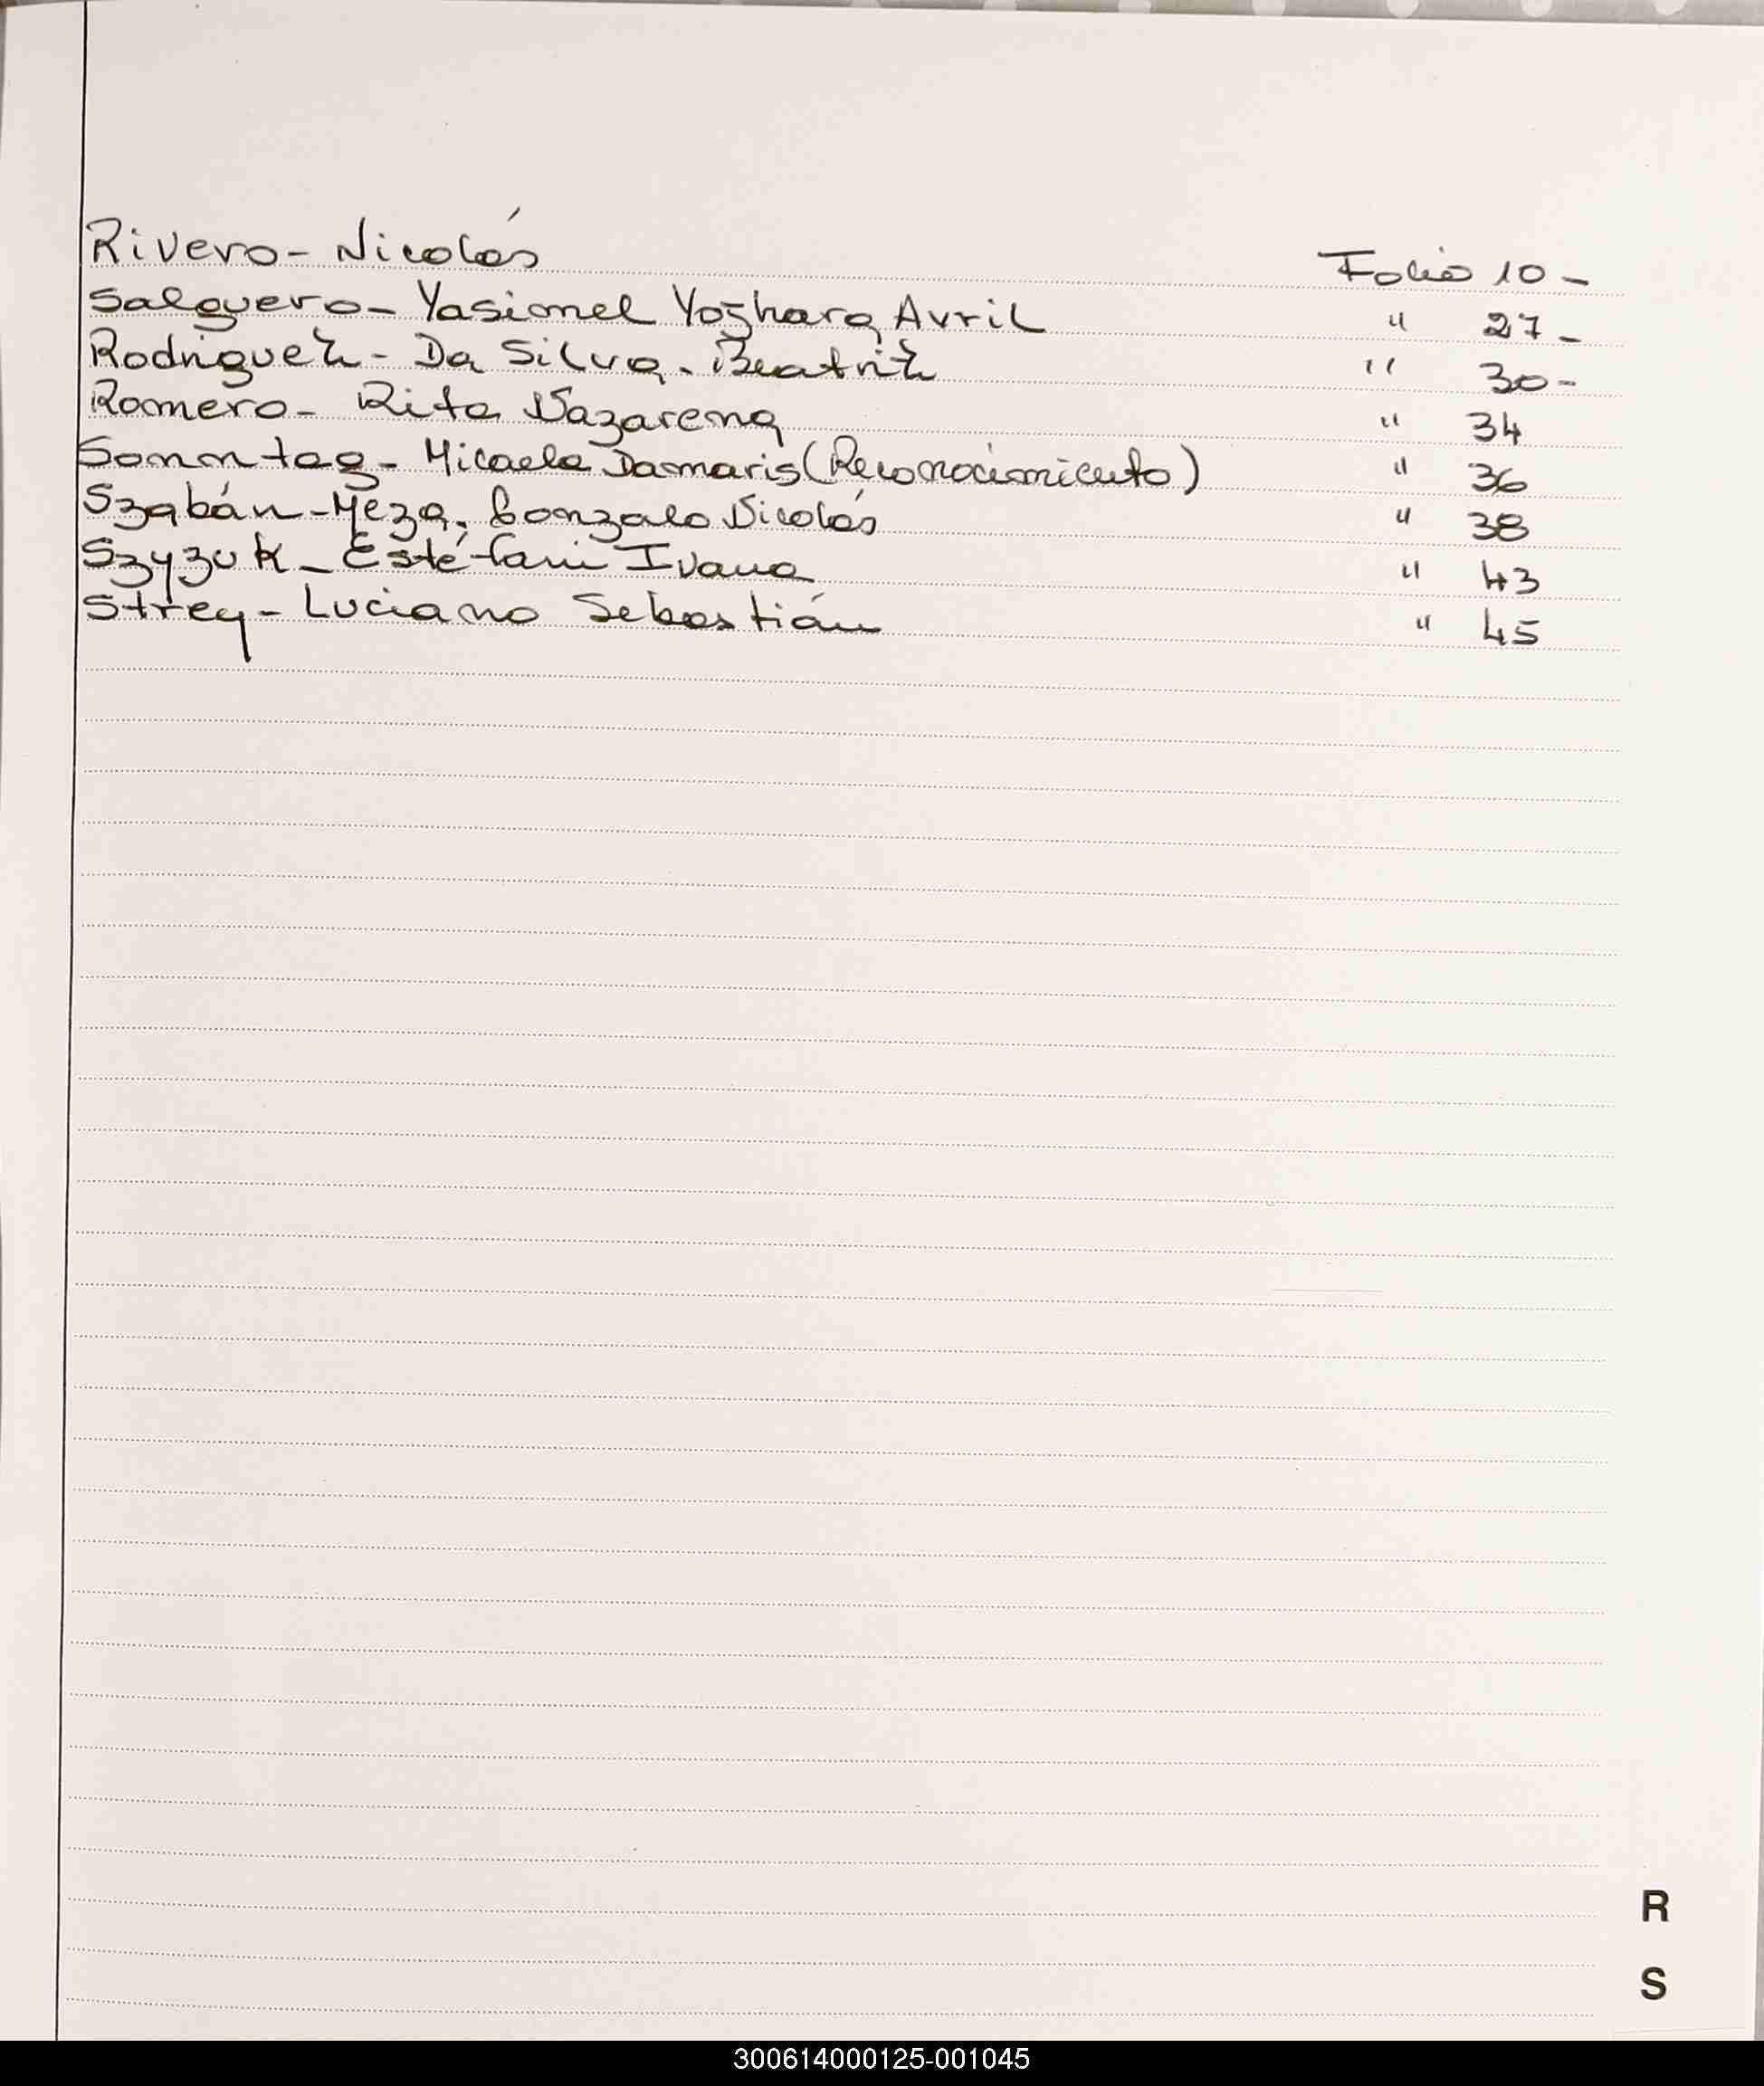 Rivero - Nicolás Folio 10 -
Salguero - Yasimel Yojhara Avril " 27 -
Rodriguez - Da Silva - Beatriz " 30 -
Romero - Rita Nazarena " 34
Sonntag - Micaela Damaris (Reconocimiento) " 36
Szabán - Meza, Gonzalo Nicolás " 38
Szyzuk - Estéfani Ivana " 43
Strey - Luciano Sebastián " 45
R
S
300614000125-001045